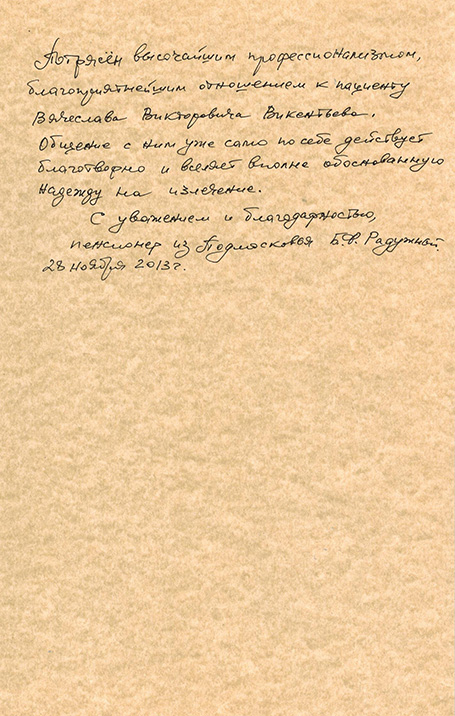 Потрясён высочайшим профессионализмом,
благоприятнейшим отношением к пациенту
Вячеслава Викторовича Викентьева.
Общение с ним уже само по себе действует
благотворно и вселяет вполне обоснованную
надежду на излечение.
С уважением и благодарностью,
пенсионер из Подмосковья Б.Ф. Радужный.
28 ноября 2013 г.